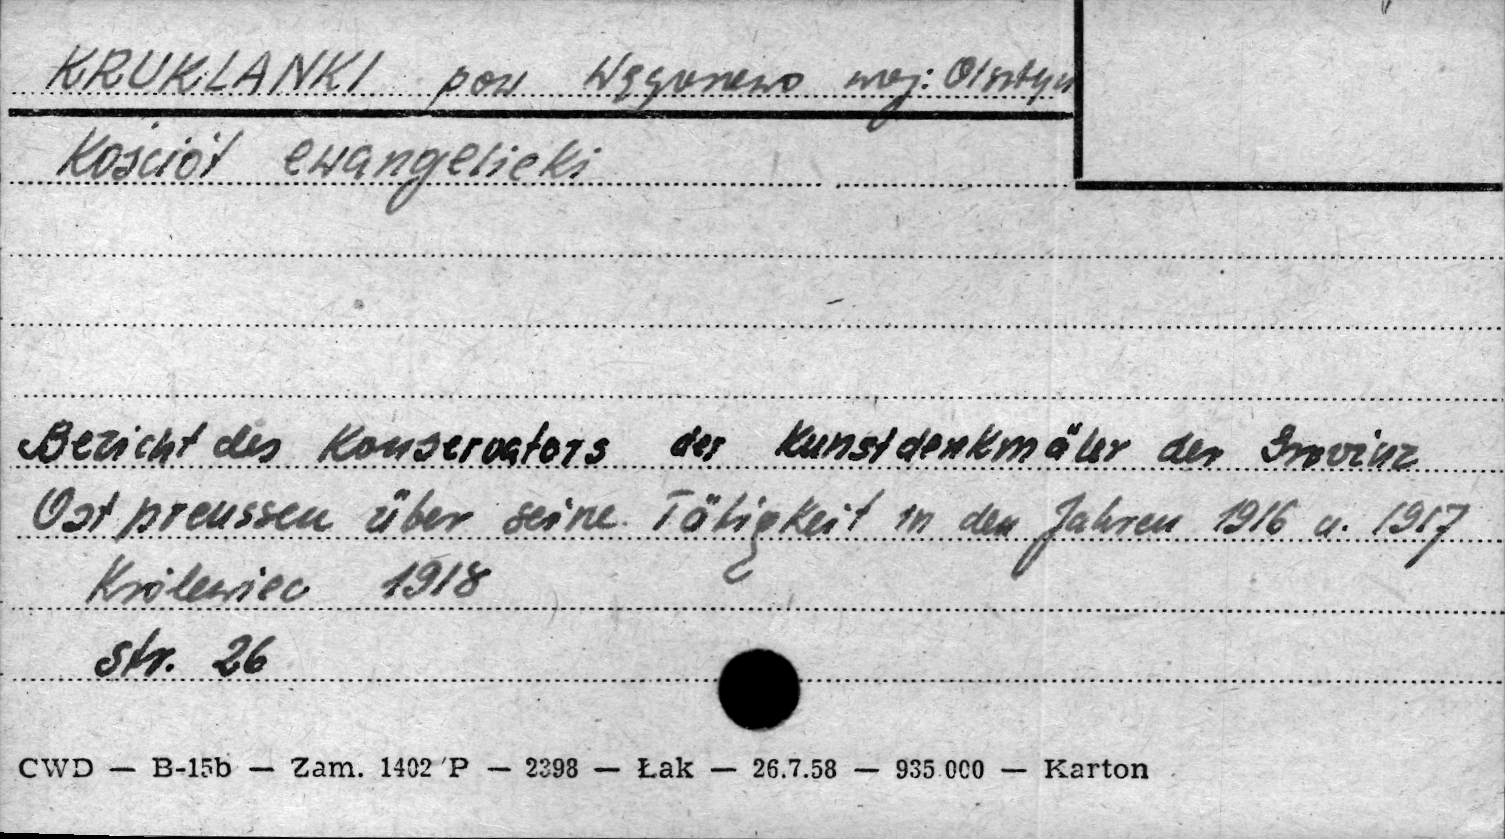 KRUKLANKI pow Węgorzewo woj: Olsztyn
Kościół ewangelicki
Bericht des Konservators der Kunstdenkmäler der Provinz
Ostpreussen über seine Tätigkeit in den Jahren 1916 u. 1917
Królewiec 1918
str. 26
CWD — B-15b — Zam. 1402/P — 2398 — Łak — 26.7.58 — 935.000 — Karton